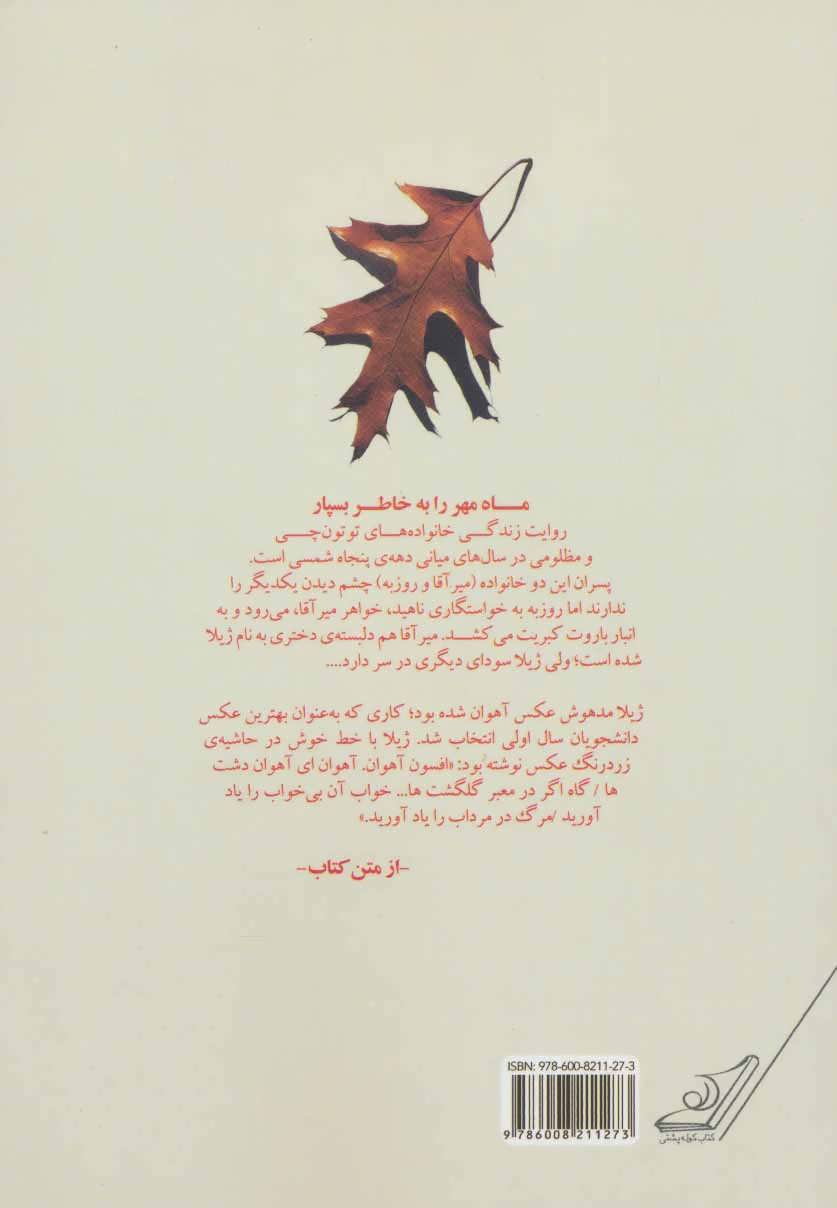 مــاه مهر را به خاطــر بسپار
روایت زندگــی خانواده‌هــای توتون‌چــی
و مظلومی در سال‌های میانی دهه‌ی پنجاه شمسی است.
پسران این دو خانواده (میرآقا و روزبه) چشم دیدن یکدیگر را
ندارند اما روزبه به خواستگاری ناهید، خواهر میرآقا، می‌رود و به
انبار باروت کبریت می‌کشــد. میرآقا هم دلبسته‌ی دختری به نام ژیلا
شده است؛ ولی ژیلا سودای دیگری در سر دارد....
ژیلا مدهوش عکس آهوان شده بود؛ کاری که به‌عنوان بهترین عکس
دانشجویان سال اولی انتخاب شد. ژیلا با خط خوش در حاشیه‌ی
زردرنگ عکس نوشته بود: «افسون آهوان. آهوان ای آهوان دشت
ها / گاه اگر در معبر گلگشت ها... خواب آن بی‌خواب را یاد
آورید /مرگ در مرداب را یاد آورید.»
-از متن کتاب-
ISBN: 978-600-8211-27-3
9 786008 211273
کتاب کوله‌پشتی